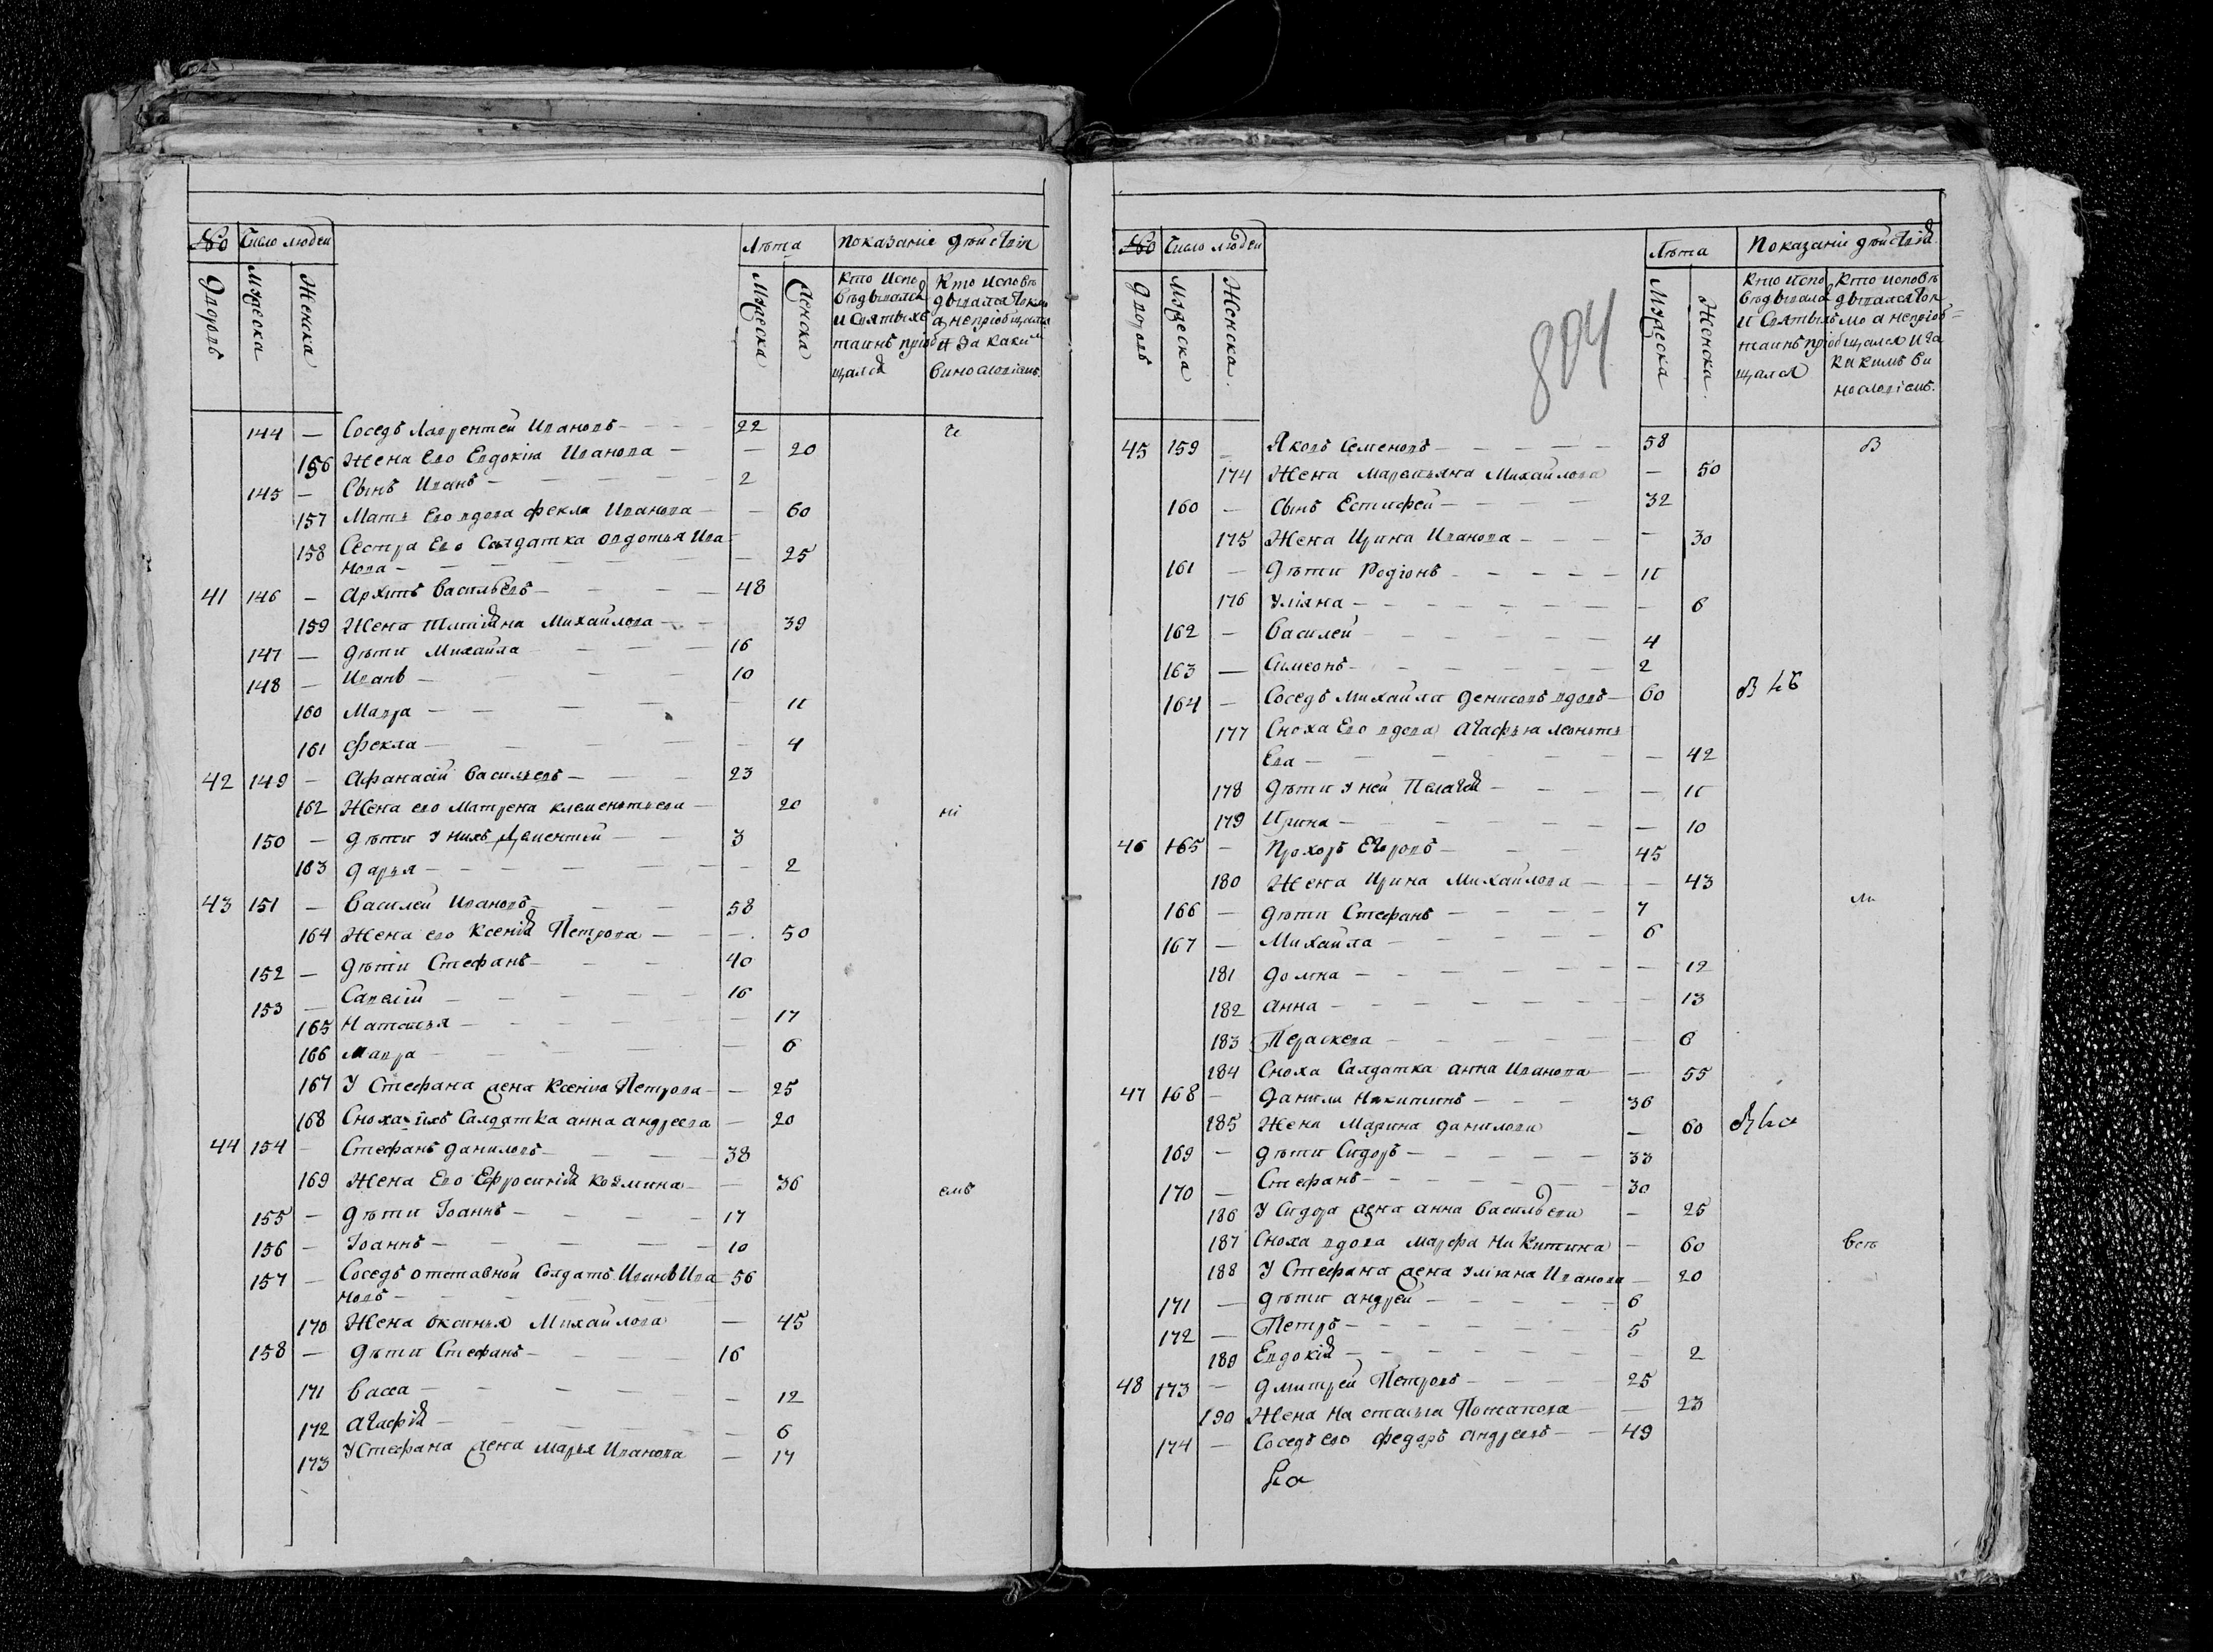 № Число людей Лѣта показаніе дѣйствія
Дворовъ Мужеска Женска Мужеска Женска
кто испо
вѣдывался
и Святыхъ
таинъ пріоб
щался
Кто исповѣ
дывался токмо
а непріобщался
и За каки
виносло́віемъ.
144 — Соседъ Лаврентей Ивановъ — 22
156 Жена Его Евдокіа Иванова — 20
145 — Сынъ Иванъ — 2
157 Мать Его вдова Фекла Иванова — 60
158 Сестра Его Салдатка Овдотья Ива
нова — 25
41 146 — Архипъ Васильевъ — 48
159 Жена Татіяна Михайлова — 39
147 — Дѣти Михайла — 16
148 — Иванъ — 10
160 Мавра — 11
161 Фекла — 4
42 149 — Афанасій Васильевъ — 23
162 Жена его Матрена Клементьева — 20
150 — Дѣти У нихъ Дементей — 3
163 Дарья — 2
43 151 — Василей Ивановъ — 58
164 Жена его Ксенія Петрова — 50
152 — Дѣти Стефанъ — 40
153 — Савелій — 16
165 Наталья — 17
166 Мавра — 6
167 У Стефана жена Ксенія Петрова — 25
168 Сноха ихъ Салдатка анна андреева — 20
44 154 — Стефанъ Даниловъ — 38
169 Жена Его Ефросинія Козмина — 36
155 — Дѣти Іоаннъ — 17
156 — Іоаннъ — 10
157 — Соседъ отставной Солдатъ Иванъ Ива 56
новъ —
170 Жена Оксинья Михайлова — 45
158 — Дѣти Стефанъ — 16
171 Васса — 12
172 Агафія — 6
173 У Стефана жена Марья Иванова — 17
804
№ Число людей Лѣта Показаніе дѣйствія
Дворовъ Мужеска Женска Мужеска Женска
Кто испо
вѣдывался
и Святыхъ
таинъ пріоб
щался
кто исповѣ
дывался ток
мо а непріоб
щался и за
какимъ ви
нословіемъ.
45 159 — Яковъ Семеновъ — 58 В
174 Жена Маремьяна Михайлова — 50
160 — Сынъ Естифей — 32
175 Жена Ирина Иванова — 30
161 — Дѣти Родіонъ — 11
176 Уліяна — 6
162 — Василей — 4
163 — Симеонъ — 2
164 — Соседъ Михайла Денисовъ вдовъ — 60
177 Сноха Его вдова Агафья Леонтъ
Ева — 42
178 Дѣти У ней Пелагея — 11
179 Ирина — 10
46 165 — Прохоръ Егоровъ — 45
180 Жена Ирина Михайлова — 43
166 — Дѣти Стефанъ — 7
167 — Михайла — 6
181 Домна — 12
182 Анна — 13
183 Пераскева — 6
184 Сноха Салдатка Анна Иванова — 55
47 168 — Данила Никитинъ — 36
185 Жена Марина Данилова — 60
169 — Дѣти Сидоръ — 33
170 — Стефанъ — 30
186 У Сидора жена анна Васильева — 25
187 Сноха вдова Марфа Никитина — 60
188 У Стефана жена Уліяна Иванова — 20
171 — Дѣти андрей — 6
172 — Петръ — 5
189 Евдокія — 2
48 173 — Дмитрей Петровъ — 25
190 Жена Наталья Потапова — 23
174 — Соседъ его Федоръ Андреевъ — 49